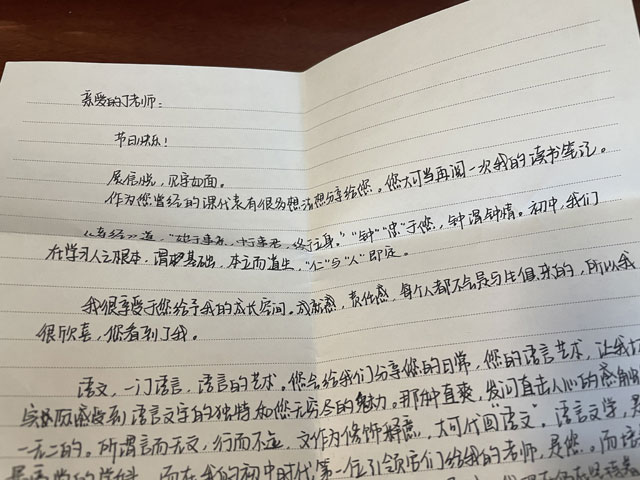 亲爱的丁老师：
节日快乐！
展信悦，见字如面。
作为您曾经的课代表有很多想法想分享给您。您大可当再阅一次我的读书笔记。
《孝经》道，“始于事亲，中于事君，终于立身。”“钟”“忠”于您，钟谓钟情。初中，我们
在学习人之根本，谓 基础，本立而道生，“仁”与“人”即是。
我很享受于您给予我的成长空间。成就感，责任感，每个人都不会是与生俱来的，所以我
很欣喜，您看到了我。
语文，一门语言，语言的艺术。您会给我们分享您的日常，您的语言艺术，让我切
实际感受到语言文字的独特和您无穷尽的魅力。那种直爽，发问直击人心的感触
一无二的。所谓言而无文，行而不远，文作为修饰释意，大可代回“语文”。语言文学，是
的学科，而在我的初中时代第一位引领它们给我的老师，是您。而